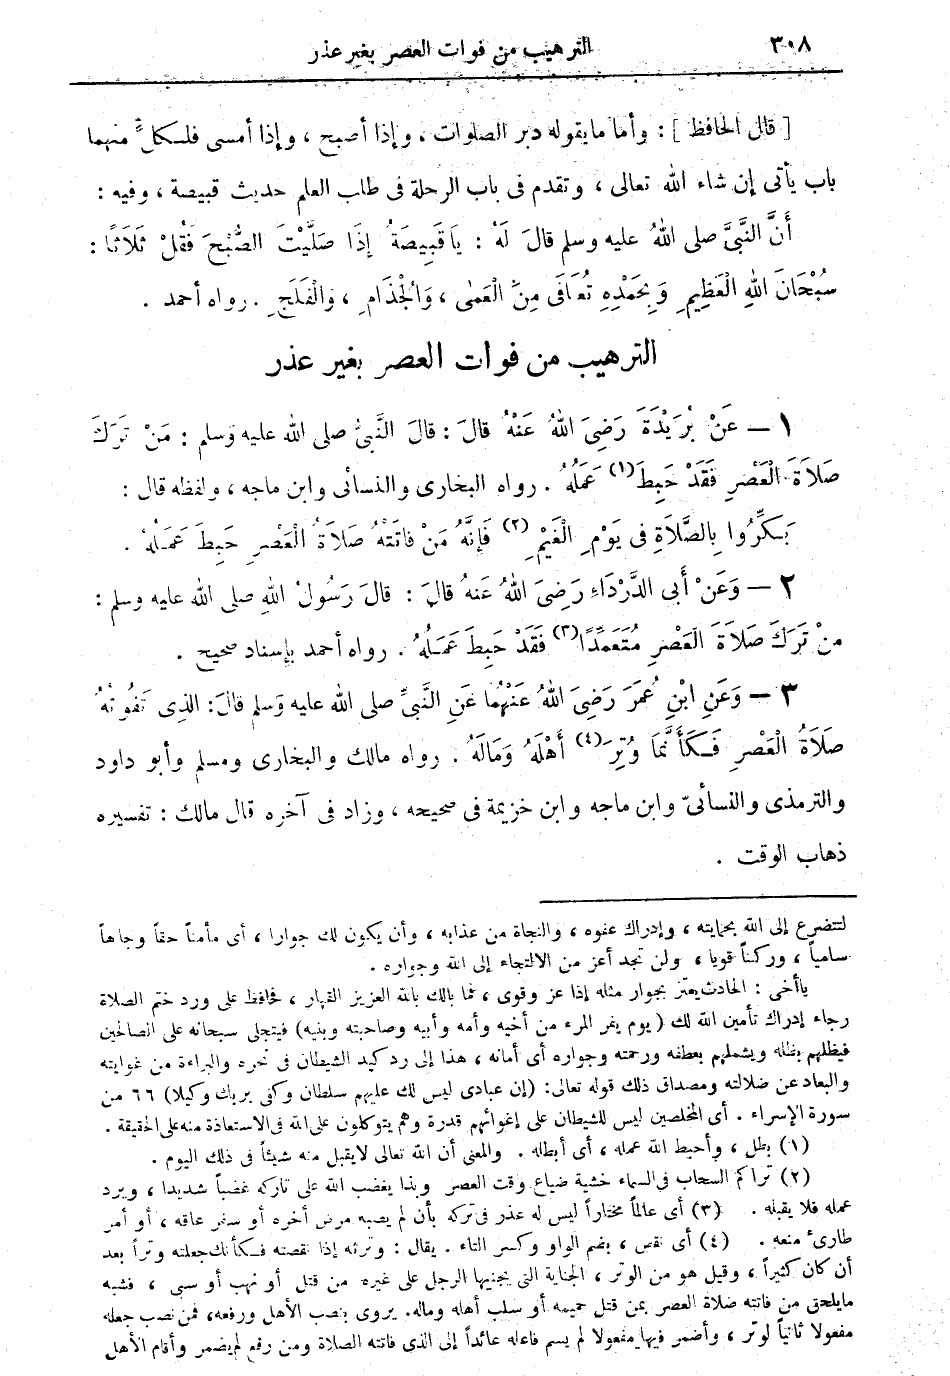 ٣٠٨
الترهيب من فوات العصر بغير عذر
[ قال الحافظ ] : وأما ما يقوله دبر الصلوات ، وإذا أصبح ، وإذا أمسى فلكلٍّ منهما
باب يأتى إن شاء الله تعالى ، وتقدم فى باب الرحلة فى طلب العلم حديث قبيصة ، وفيه :
أَنَّ النَّبِىَّ صلى اللهُ عليه وسلم قالَ لَهُ : يَا قَبِيصَةُ إِذَا صَلَّيْتَ الصُّبْحَ فَقُلْ ثَلَاثًا :
سُبْحَانَ اللهِ الْعَظِيمِ وَبِحَمْدِهِ تُعَافَى مِنَ الْعَمَى ، وَالْجُذَامِ ، وَالْفَلَجِ . رواه أحمد .
الترهيب من فوات العصر بغير عذر
١ — عَنْ بُرَيْدَةَ رَضِىَ اللهُ عَنْهُ قالَ : قالَ النَّبِىُّ صلى الله عليه وَسلم : مَنْ تَرَكَ
صَلَاةَ الْعَصْرِ فَقَدْ حَبِطَ (١) عَمَلُهُ . رواه البخارى والنسائى وابن ماجه ، ولفظه قال :
بَكِّرُوا بِالصَّلَاةِ فِى يَوْمِ الْغَيْمِ (٢) فَإِنَّهُ مَنْ فَاتَتْهُ صَلَاةُ الْعَصْرِ حَبِطَ عَمَلُهُ .
٢ — وَعَنْ أَبِى الدَّرْدَاءِ رَضِىَ اللهُ عَنهُ قالَ : قالَ رَسُولُ اللهِ صلى الله عليه وسلم :
مَنْ تَرَكَ صَلَاةَ الْعَصْرِ مُتَعَمِّدًا (٣) فَقَدْ حَبِطَ عَمَلُهُ . رواه أحمد بإسناد صحيح .
٣ — وَعَنِ ابْنِ عُمَرَ رَضِىَ اللهُ عَنْهُمَا عَنِ النَّبِىِّ صلى الله عليه وَسلم قالَ : الَّذِى تَفُوتُهُ
صَلَاةُ الْعَصْرِ فَكَأَنَّمَا وُتِرَ (٤) أَهْلَهُ وَمَالَهُ . رواه مالك والبخارى ومسلم وأبو داود
والترمذى والنسائىّ وابن ماجه وابن خزيمة فى صحيحه ، وزاد فى آخره قال مالك : تفسيره
ذهاب الوقت .
لتتضرع إلى الله بحمايته ، وإدراك عفوه ، والنجاة من عذابه ، وأن يكون لك جوارا ، أى مأمناً حقاً وجاهاً
سامياً ، وركناً قويا ، ولن تجد أعز من الالتجاء إلى الله وجواره .
ياأخى : الحادث يعتز بجوار مثله إذا عز وقوى ، فما بالك بالله العزيز القهار ، فحافظ على ورد ختم الصلاة
رجاء إدراك تأمين الله لك ( يوم يفر المرء من أخيه وأمه وأبيه وصاحبته وبنيه ) فيتجلى سبحانه على الصالحين
فيظلهم بظله ويشملهم بعطفه ورحمته وجواره أى أمانه ، هذا إلى رد كيد الشيطان فى نحره والبراءة من غوايته
والبعاد عن ضلالته ومصداق ذلك قوله تعالى : (إن عبادى ليس لك عليهم سلطان وكفى بربك وكيلا) ٦٦ من
سورة الإسراء . أى المخلصين ليس للشيطان على إغوائهم قدرة وهم يتوكلون على الله فى الاستعاذة منه على الحقيقة .
(١) بطل ، وأحبط الله عمله ، أى أبطله . والمعنى أن الله تعالى لايقبل منه شيئاً فى ذلك اليوم .
(٢) تراكم السحاب فى السماء خشية ضياع وقت العصر وبذا يغضب الله على تاركه غضباً شديدا ، ويرد
عمله فلا يقبله . (٣) أى عالماً مختاراً ليس له عذر فى تركه بأن لم يصبه مرض أخره أو سفر عاقه ، أو أمر
طارىء منعه . (٤) أى نقص ، بضم الواو وكسر التاء . يقال : وترته إذا نقصته فكأنك جعلته وتراً بعد
أن كان كثيراً ، وقيل هو من الوتر ، الجناية التى يجنيها الرجل على غيره من قتل أو نهب أو سبى ، فشبه
مايلحق من فاتته صلاة العصر بمن قتل حميمه أو سلب أهله وماله. يروى بنصب الأهل ورفعه، فمن نصب جعله
مفعولا ثانياً لوتر ، وأضمر فيها مفعولا لم يسم فاعله عائداً إلى الذى فاتته الصلاة ومن رفع لم يضمر وأقام الأهل